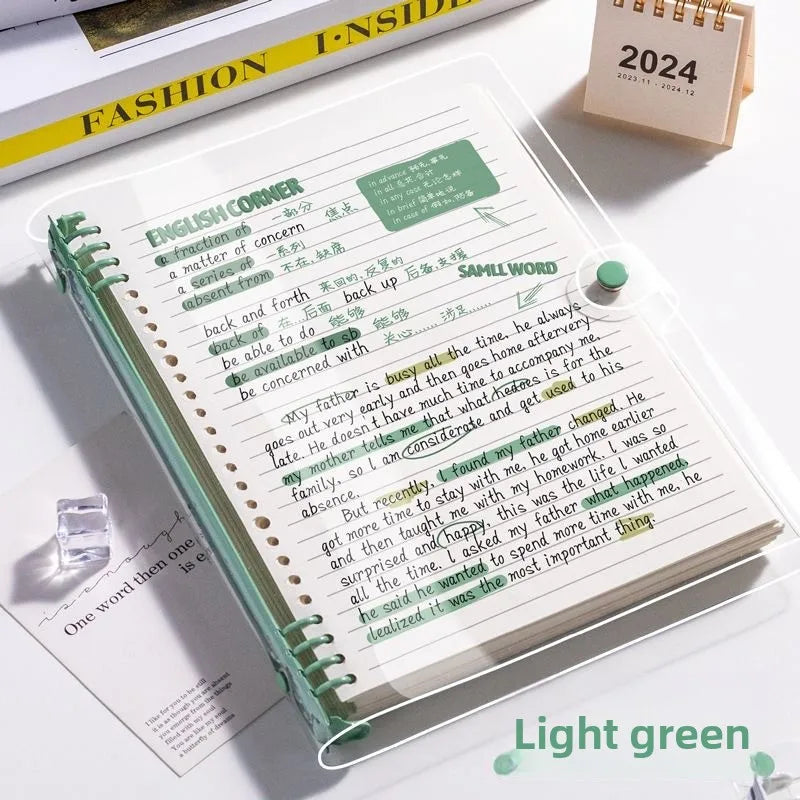 FASHION I·NSIDE
2024
2023.11 - 2024.12
ENGLISH CORNER
in advance
in all 总共,合计
in any case 无论怎样
in brief 简单地说
in case of 假如,防备
a fraction of 一部分 焦点
a matter of concern
a series of 一系列
absent from 不在,缺席
SAMLL WORD
back and forth 来回的,反复的 back up 后备,支援
back of 在...后面
be able to do 能够
be available to sb 能够
be concerned with 关心...... 涉足......
My father is busy all the time. he always
goes out very early and then goes home aftervery
late. He doesn't have much time to accompany me.
my mother tells me that what hedoes is for the
family, so I am considerate and get used to his
absence.
But recently, I found my father changed. He
got more time to stay with me, he got home earlier
and then taught me with my homework. I was so
surprised and happy, this was the life I wanted
all the time. I asked my father what happened,
he said he wanted to spend more time with me, he
lealized it was the most important thing.
is enough
One word then one
is e
I like for you to be still
it is as though you are absent
you emerge from the things
filled with my soul
You are like my soul
a butterfly of dreams
Light green